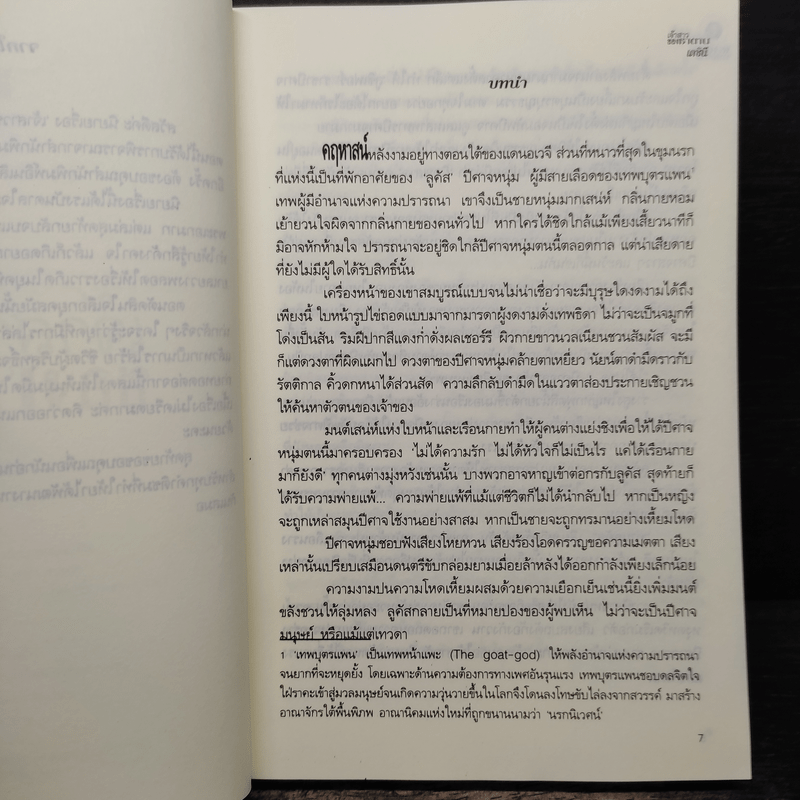 บทนำ
คฤหาสน์หลังงามอยู่ทางตอนใต้ของแดนอเวจี ส่วนที่หนาวที่สุดในขุมนรก
ที่แห่งนี้เป็นที่พักอาศัยของ ‘ลูคัส’ ปีศาจหนุ่ม ผู้มีสายเลือดของเทพบุตรแพน¹
เทพผู้มีอำนาจแห่งความปรารถนา เขาจึงเป็นชายหนุ่มมากเสน่ห์ กลิ่นกายหอม
เย้ายวนใจผิดจากกลิ่นกายของคนทั่วไป หากใครได้ชิดใกล้แม้เพียงเสี้ยวนาทีก็
มิอาจหักห้ามใจ ปรารถนาจะอยู่ชิดใกล้ปีศาจหนุ่มตนนี้ตลอดกาล แต่น่าเสียดาย
ที่ยังไม่มีผู้ใดได้รับสิทธิ์นั้น
เครื่องหน้าของเขาสมบูรณ์แบบจนไม่น่าเชื่อว่าจะมีบุรุษใดงดงามได้ถึง
เพียงนี้ ใบหน้ารูปไข่ถอดแบบมาจากมารดาผู้งดงามดั่งเทพธิดา ไม่ว่าจะเป็นจมูกที่
โด่งเป็นสัน ริมฝีปากสีแดงก่ำดั่งผลเชอร์รี ผิวกายขาวนวลเนียนชวนสัมผัส จะมี
ก็แต่ดวงตาที่ผิดแผกไป ดวงตาของปีศาจหนุ่มคล้ายตาเหยี่ยว นัยน์ตาดำมืดราวกับ
รัตติกาล คิ้วดกหนาได้ส่วนสัด ความลึกลับดำมืดในแววตาส่องประกายเชิญชวน
ให้ค้นหาตัวตนของเจ้าของ
มนต์เสน่ห์แห่งใบหน้าและเรือนกายทำให้ผู้คนต่างแย่งชิงเพื่อให้ได้ปีศาจ
หนุ่มตนนี้มาครอบครอง ‘ไม่ได้ความรัก ไม่ได้หัวใจก็ไม่เป็นไร แค่ได้เรือนกาย
มาก็ยังดี’ ทุกคนต่างมุ่งหวังเช่นนั้น บางพวกอาจหาญเข้าต่อกรกับลูคัส สุดท้ายก็
ได้รับความพ่ายแพ้... ความพ่ายแพ้ที่แม้แต่ชีวิตก็ไม่ได้นำกลับไป หากเป็นหญิง
จะถูกเหล่าสมุนปีศาจใช้งานอย่างสาสม หากเป็นชายจะถูกทรมานอย่างเหี้ยมโหด
ปีศาจหนุ่มชอบฟังเสียงโหยหวน เสียงร้องโอดครวญขอความเมตตา เสียง
เหล่านั้นเปรียบเสมือนดนตรีขับกล่อมยามเมื่อยล้าหลังได้ออกกำลังเพียงเล็กน้อย
ความงามปนความโหดเหี้ยมผสมด้วยความเยือกเย็นเช่นนี้ยิ่งเพิ่มมนต์
ขลังชวนให้ลุ่มหลง ลูคัสกลายเป็นที่หมายปองของผู้พบเห็น ไม่ว่าจะเป็นปีศาจ
มนุษย์ หรือแม้แต่เทวดา
1 ‘เทพบุตรแพน’ เป็นเทพหน้าแพะ (The goat-god) ให้พลังอำนาจแห่งความปรารถนา
จนยากที่จะหยุดยั้ง โดยเฉพาะด้านความต้องการทางเพศอันรุนแรง เทพบุตรแพนชอบดลจิตใจ
ใฝ่ราคะเข้าสู่มวลมนุษย์จนเกิดความวุ่นวายขึ้นในโลกจึงโดนลงโทษขับไล่ลงจากสวรรค์ มาสร้าง
อาณาจักรใต้พื้นพิภพ อาณานิคมแห่งใหม่ที่ถูกขนานนามว่า ‘นรกนิเวศน์’
7